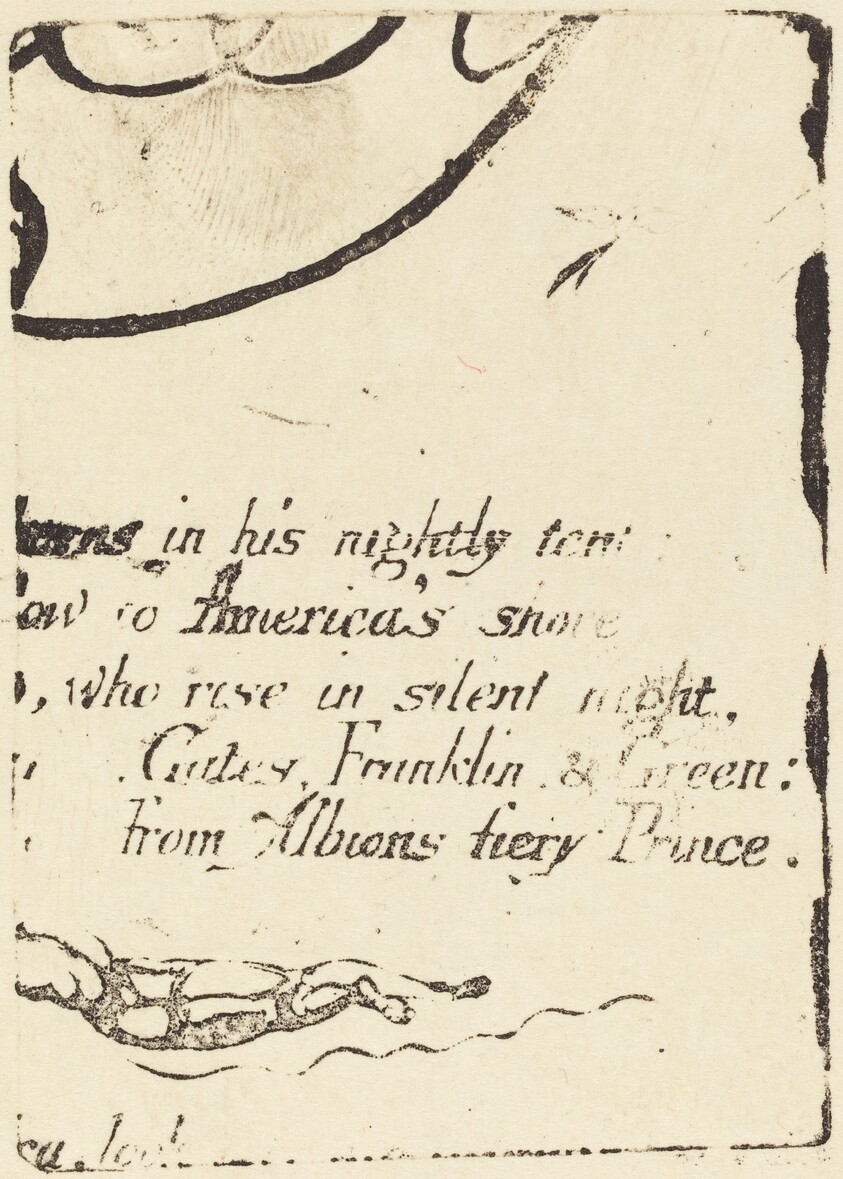 burns in his nightly tent
low to America's shore
, who rose in silent night,
Gates, Franklin & Green:
From Albions fiery Prince.
ca. look